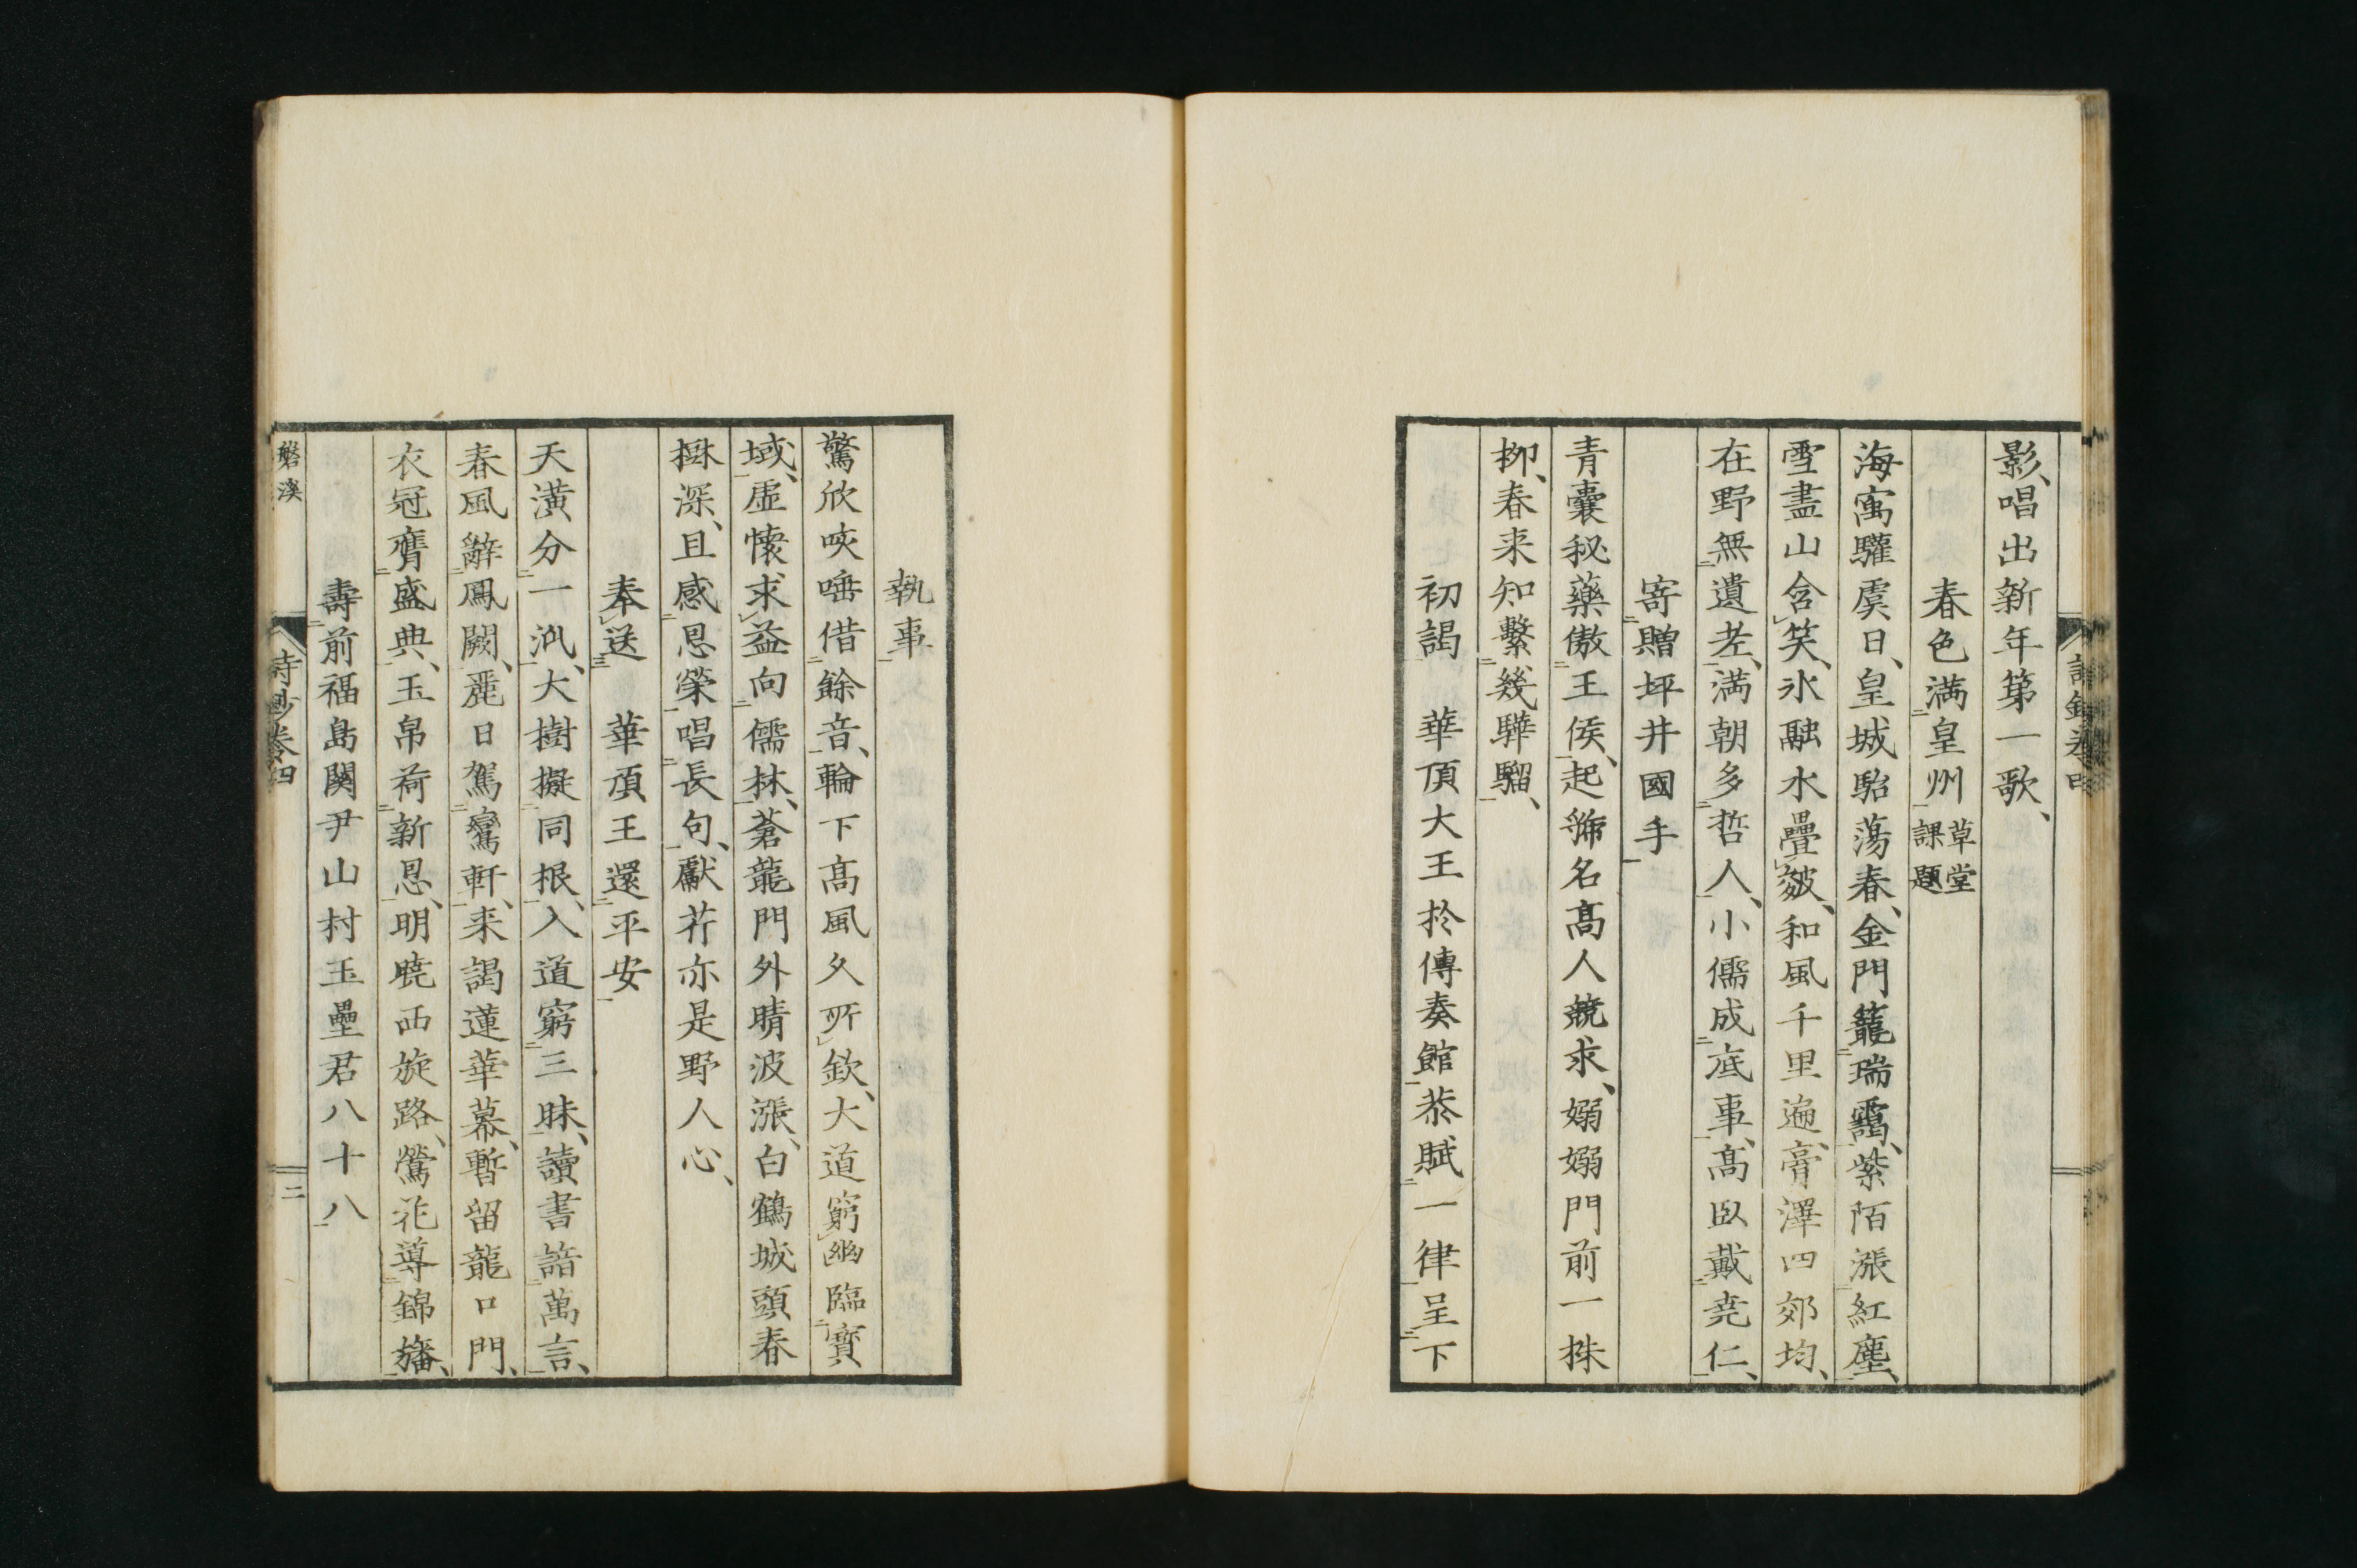 影、唱出新年第一歌、
春色満皇州草堂課題
海寓驩虞日、皇城駘蕩春、金門籠瑞靄、紫陌漲紅塵、
雪盡山含笑、氷融水疊皺、和風千里遍、膏澤四郊均、
在野無遺老、満朝多哲人、小儒成底事、高臥戴尭仁、
寄贈坪井國手
青囊秘藥傲王侯、起癈名高人競求、嫋嫋門前一株
柳、春来知繫幾驊騮、
初謁 華頂大王於傳奏館恭賦一律呈下
執事
驚欣咳唾借餘音、輪下高風久所欽、大道窮幽臨寳
域、虚懷求益向儒林、蒼龍門外晴波漲、白鶴城頭春
樹深、且感恩榮唱長句、獻芹亦是野人心、
奉送 華頂王還平安
天潢分一派、大樹擬同根、入道窮三昧、讀書諳萬言、
春風辭鳳闕、麗日駕鸞軒、来謁蓮華幕、暫留龍口門、
衣冠膺盛典、玉帛荷新恩、明曉西旋路、鶯花導錦旛、
壽前福島関尹山村玉壘君八十八
磐溪
詩鈔卷四
二